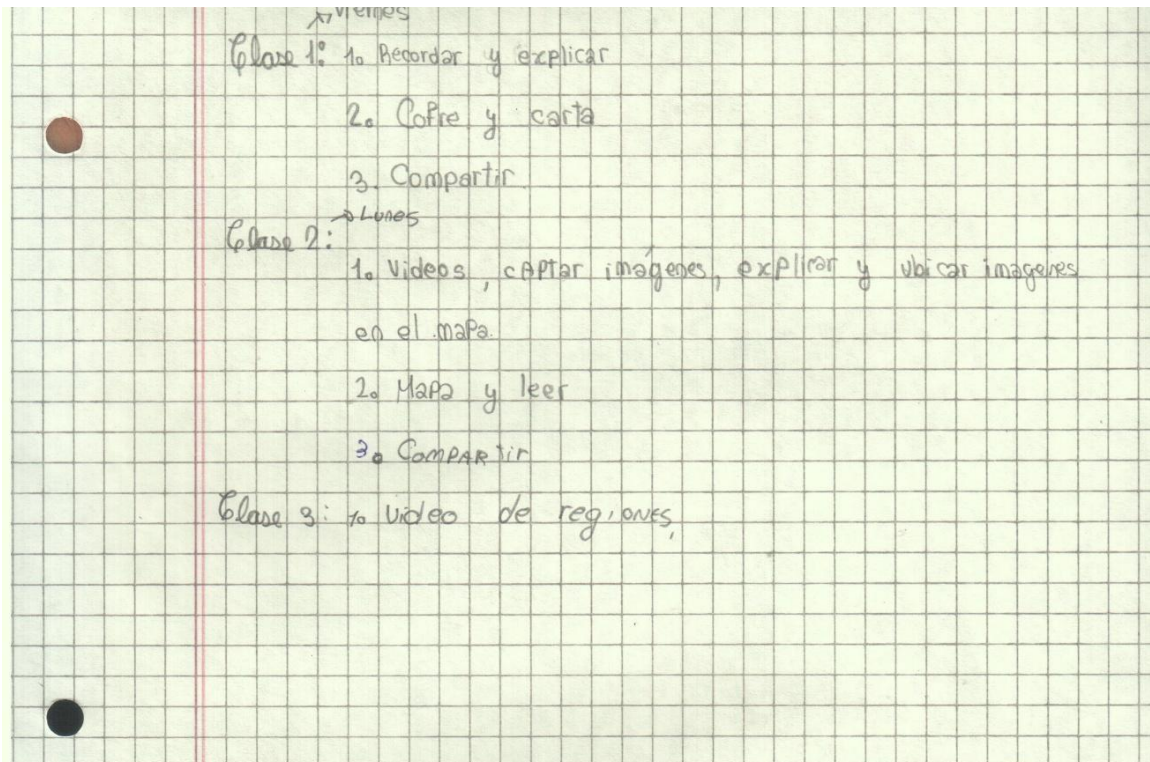 Viernes
Clase 1: 1. Recordar y explicar
2. Cofre y carta
3. Compartir
Lunes
Clase 2:
1. Videos, captar imágenes, explicar y ubicar imagenes
en el mapa.
2. Mapa y leer
3. Compartir
Clase 3: 1. Video de regiones.